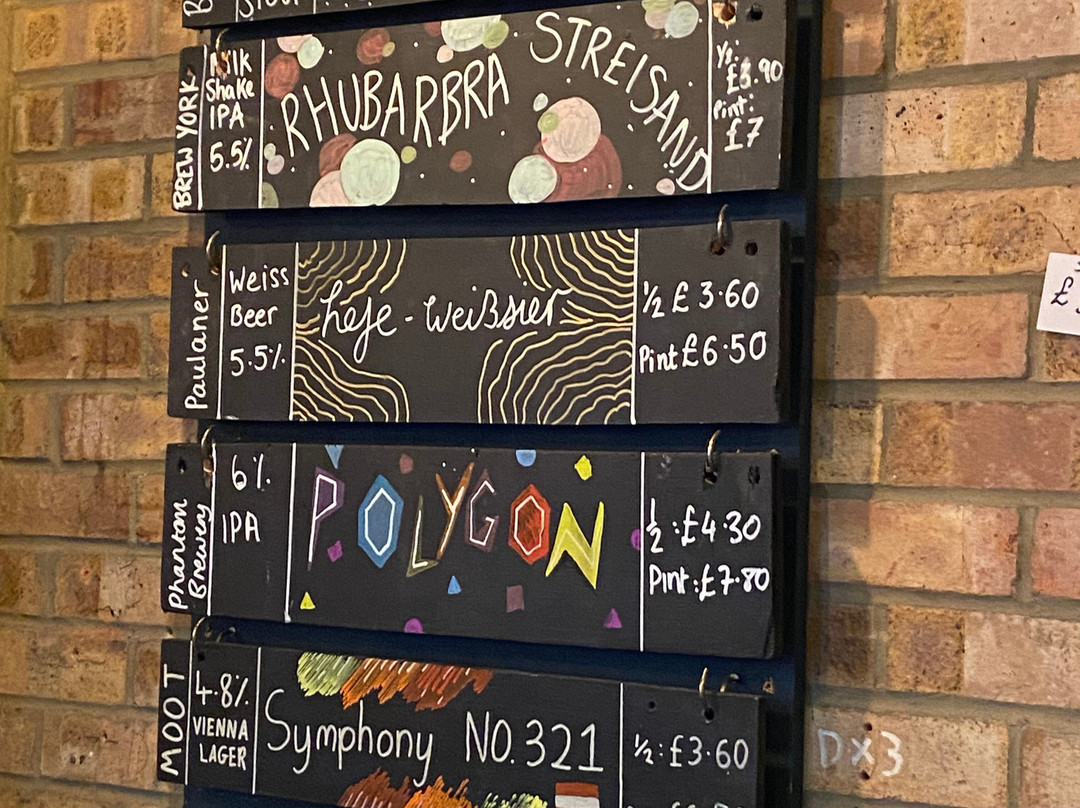 BREW YORK
Milk
Shake
IPA
5.5%
RHUBARBRA STREISAND
½: £3.90
Pint:
£7
Paulaner
Weiss
Beer
5.5%
hefe-weißsier
½ £3.60
Pint £6.50
Phantom
Brewery
6%
IPA
POLYGON
½: £4.30
Pint: £7.80
MOOT
4.8%
VIENNA
LAGER
Symphony NO.321
½: £3.60
DX3
£